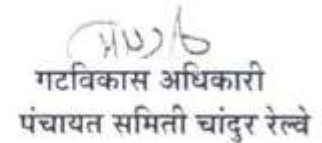 गटविकास अधिकारी
पंचायत समिती चांदुर रेल्वे